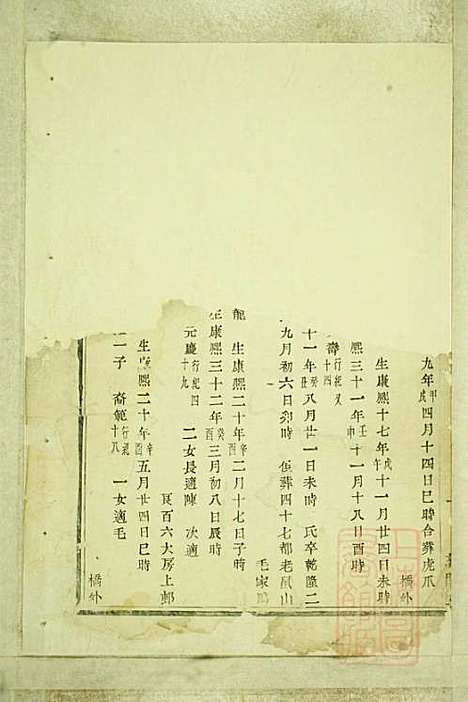 九年甲戌四月十四日巳時合葬虎爪
橋外
生康熙十七年戊午十一月廿四日未時
熙三十一年壬申十一月十八日酉時
壽行紀又十四
十一年癸丑八月廿一日未時 氏卒乾隆二
九月初六日卯時 俱葬四十七都老鼠山
毛家
龍 生康熙二十年辛酉二月十七日子時
康熙三十二年癸酉三月初八日辰時
元慶行紀四十九 二女長適陳 次適
百六大房上
生康熙二十年辛酉五月廿四日巳時
二子 裔範行紀十八 一女適毛
橋外